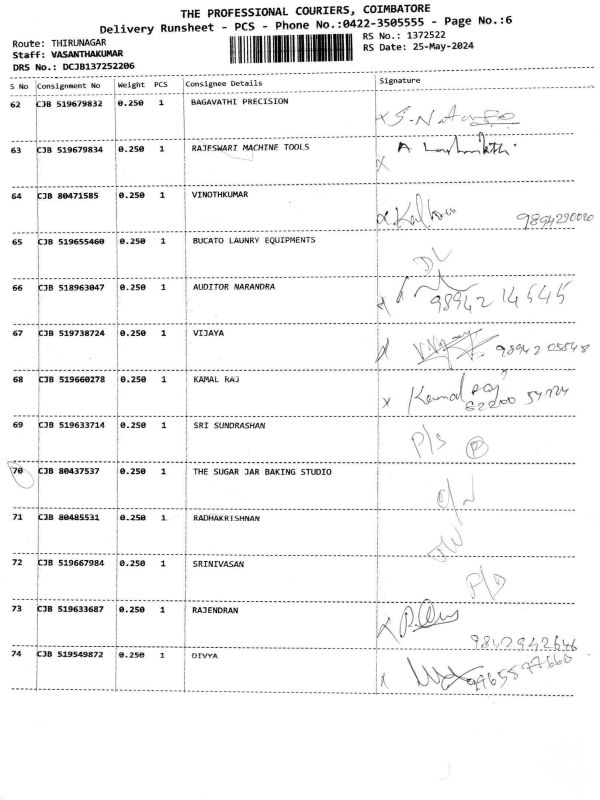 THE PROFESSIONAL COURIERS, COIMBATORE
Delivery Runsheet - PCS - Phone No.:0422-3505555 - Page No.:6
Route: THIRUNAGAR
RS No.: 1372522
Staff: VASANTHAKUMAR
RS Date: 25-May-2024
DRS No.: DCJB137252206
S No Consignment No Weight PCS Consignee Details Signature
62 CJB 519679832 0.250 1 BAGAVATHI PRECISION
63 CJB 519679834 0.250 1 RAJESWARI MACHINE TOOLS
64 CJB 80471585 0.250 1 VINOTHKUMAR
65 CJB 519655460 0.250 1 BUCATO LAUNRY EQUIPMENTS
DL
66 CJB 518963047 0.250 1 AUDITOR NARANDRA
98942 14545
67 CJB 519738724 0.250 1 VIJAYA
98942 05548
68 CJB 519660278 0.250 1 KAMAL RAJ
Kamal raj
69 CJB 519633714 0.250 1 SRI SUNDRASHAN
P/S
70 CJB 80437537 0.250 1 THE SUGAR JAR BAKING STUDIO
71 CJB 80485531 0.250 1 RADHAKRISHNAN
72 CJB 519667984 0.250 1 SRINIVASAN
73 CJB 519633687 0.250 1 RAJENDRAN
9842942646
74 CJB 519549872 0.250 1 DIVYA
9965577660